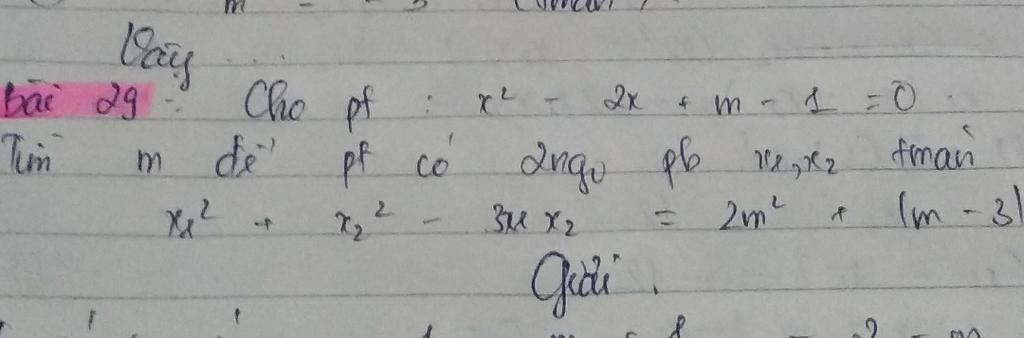 Vậy ....
bài 29 : Cho pt : x² - 2x + m - 1 = 0
Tìm m để pt có 2 ngo pb x₁, x₂ tmãn
x₁² + x₂² - 3x₁x₂ = 2m² + |m - 3|
Giải.